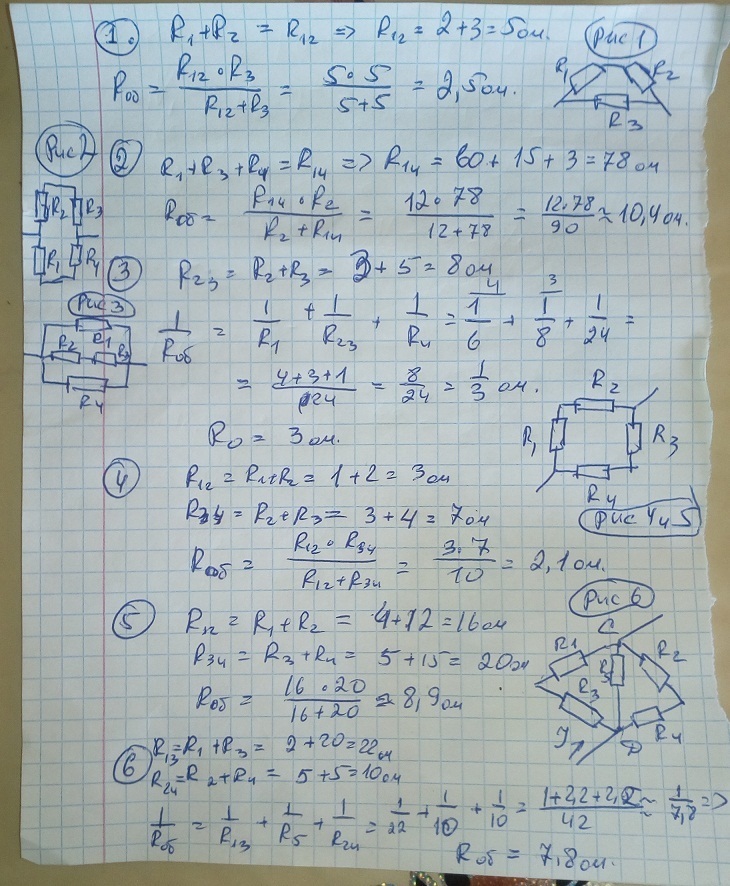 1. R₁+R₂ = R₁₂ => R₁₂ = 2+3=5ом. Рис 1
Rоб = R₁₂∘R₃ / R₁₂+R₃ = 5∘5 / 5+5 = 2,5ом.
R₁ R₂
R₃
Рис 2
2 R₁+R₃+R₄=R₁₄ => R₁₄=60+15+3=78ом
Rоб = R₁₄∘R₂ / R₂+R₁₄ = 12∘78 / 12+78 = 12.78 / 90 ≈ 10,4ом.
R₂ R₃
R₁ R₄
3 R₂₃ = R₂+R₃ = 3+5=8ом
Рис 3
R₁
R₂ R₃
R₄
1/Rоб = 1/R₁ + 1/R₂₃ + 1/R₄ = 4 1/6 + 3 1/8 + 1/24 =
= 4+3+1 / 24 = 8/24 = 1/3 ом.
R₀ = 3ом.
R₂
R₁ R₃
R₄
Рис 4 и 5
4 R₁₂ = R₁+R₂ = 1+2=3ом
R₃₄ = R₂+R₃ = 3+4=7ом
Rоб = R₁₂∘R₃₄ / R₁₂+R₃₄ = 3.7 / 10 = 2,1ом.
Рис 6
5 R₁₂ = R₁+R₂ = 4+12=16ом
R₃₄ = R₃+R₄ = 5+15=20ом
Rоб = 16∘20 / 16+20 = 8,9ом
C
R₁ R₅ R₂
R₃ R₄
D
6 R₁₃=R₁+R₃= 2+20=22ом
R₂₄=R₂+R₄= 5+5=10ом
1/Rоб = 1/R₁₃ + 1/R₅ + 1/R₂₄ = 1/22 + 1/10 + 1/10 = 1+2,2+2,2 / 42 ≈ 1/7,8 =>
Rоб = 7,8ом.